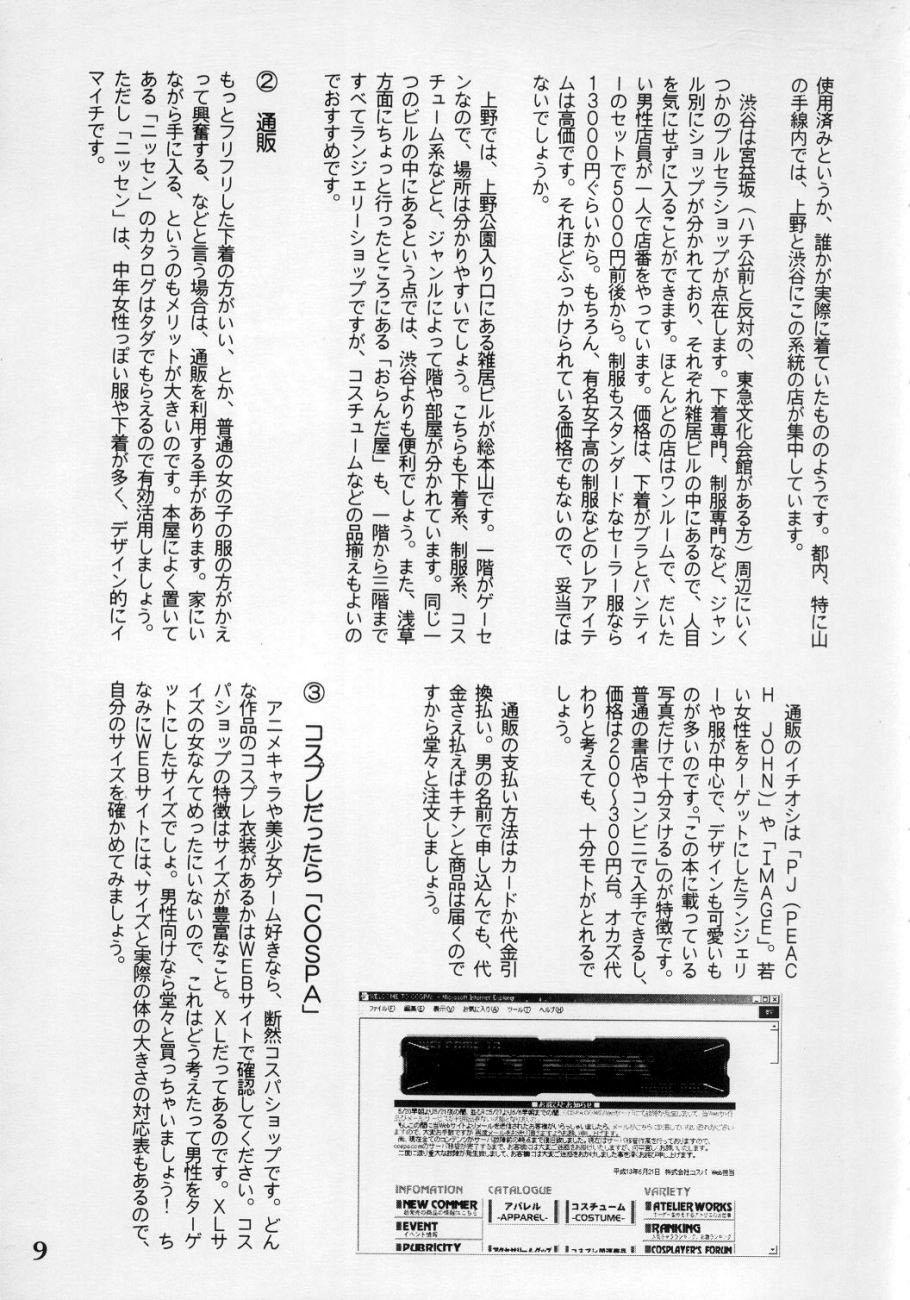 使用済みというか、誰かが実際に着ていたもののようです。都内、特に山
の手線内では、上野と渋谷にこの系統の店が集中しています。
渋谷は宮益坂（ハチ公前と反対の、東急文化会館がある方）周辺にいく
つかのブルセラショップが点在します。下着専門、制服専門など、ジャン
ル別にショップが分かれており、それぞれ雑居ビルの中にあるので、人目
を気にせずに入ることができます。ほとんどの店はワンルームで、だいた
い男性店員が一人で店番をやっています。価格は、下着がブラとパンティ
ーのセットで5000円前後から。制服もスタンダードなセーラー服なら
13000円ぐらいから。もちろん、有名女子高の制服などのレアアイテ
ムは高価です。それほどふっかけられている価格でもないので、妥当では
ないでしょうか。
上野では、上野公園入り口にある雑居ビルが総本山です。一階がゲーセ
ンなので、場所は分かりやすいでしょう。こちらも下着系、制服系、コス
チューム系などと、ジャンルによって階や部屋が分かれています。同じ一
つのビルの中にあるという点では、渋谷よりも便利でしょう。また、浅草
方面にちょっと行ったところにある「おらんだ屋」も、一階から三階まで
すべてランジェリーショップですが、コスチュームなどの品揃えもよいの
でおすすめです。
② 通販
もっとフリフリした下着の方がいい、とか、普通の女の子の服の方がかえ
って興奮する、などと言う場合は、通販を利用する手があります。家にい
ながら手に入る、というのもメリットが大きいのです。本屋によく置いて
ある「ニッセン」のカタログはタダでもらえるので有効活用しましょう。
ただし「ニッセン」は、中年女性っぽい服や下着が多く、デザイン的にイ
マイチです。
通販のイチオシは「PJ（PEAC
H JOHN）」や「IMAGE」。若
い女性をターゲットにしたランジェリ
ーや服が中心で、デザインも可愛いも
のが多いのです。「この本に載っている
写真だけで十分ヌける」のが特徴です。
普通の書店やコンビニで入手できるし、
価格は200〜300円台。オカズ代
わりと考えても、十分モトがとれるで
しょう。
通販の支払い方法はカードか代金引
換払い。男の名前で申し込んでも、代
金さえ払えばキチンと商品は届くので
すから堂々と注文しましょう。
③ コスプレだったら「COSPA」
アニメキャラや美少女ゲーム好きなら、断然コスパショップです。どん
な作品のコスプレ衣装があるかはWEBサイトで確認してください。コス
パショップの特徴はサイズが豊富なこと。XLだってあるのです。XLサ
イズの女なんてめったにいないので、これはどう考えたって男性をターゲ
ットにしたサイズでしょ。男性向けなら堂々と買っちゃいましょう！　ち
なみにWEBサイトには、サイズと実際の体の大きさの対応表もあるので、
自分のサイズを確かめてみましょう。
WELCOME TO COSPA! - Microsoft Internet Explorer
ファイル(F) 編集(E) 表示(V) お気に入り(A) ツール(T) ヘルプ(H)
WELCOME TO
■お詫びとお知らせ■
平成13年6月21日 株式会社コスパ Web担当
INFOMATION CATALOGUE VARIETY
NEW COMMER アパレル コスチューム ATELIER WORKS
-APPAREL- -COSTUME-
EVENT RANKING
イベント情報
PUBRICITY COSPLAYER'S FORUM
9